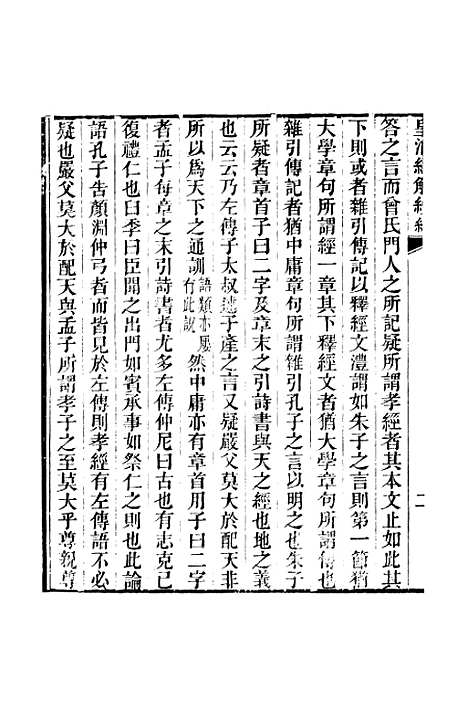 皇清經解續編
二
答之言而曾氏門人之所記疑所謂孝經者其本文止如此其
下則或者雜引傳記以釋經文澧謂如朱子之言則第一節猶
大學章句所謂經一章其下釋經文者猶大學章句所謂傳也
雜引傳記者猶中庸章句所謂雜引孔子之言以明之也朱子
所疑者章首子曰二字及章末之引詩書與天之經也地之義
也云云乃左傳子太叔述子產之言又疑嚴父莫大於配天非
所以爲天下之通訓語類亦屢有此說然中庸亦有章首用子曰二字
者孟子每章之末引詩書者尤多左傳仲尼曰古也有志克己
復禮仁也臼季曰臣聞之出門如賓承事如祭仁之則也此論
語孔子告顏淵仲弓者而皆見於左傳則孝經有左傳語不必
疑也嚴父莫大於配天與孟子所謂孝子之至莫大乎尊親尊